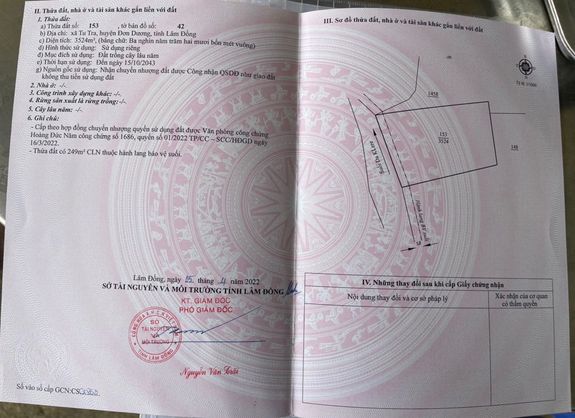 II. Thửa đất, nhà ở và tài sản khác gắn liền với đất
1. Thửa đất:
a) Thửa đất số: 153 , tờ bản đồ số: 42
b) Địa chỉ: xã Tu Tra, huyện Đơn Dương, tỉnh Lâm Đồng
c) Diện tích: 3524m², (bằng chữ: Ba nghìn năm trăm hai mươi bốn mét vuông)
d) Hình thức sử dụng: Sử dụng riêng
đ) Mục đích sử dụng: Đất trồng cây lâu năm
e) Thời hạn sử dụng: Đến ngày 15/10/2043
g) Nguồn gốc sử dụng: Nhận chuyển nhượng đất được Công nhận QSDĐ như giao đất
không thu tiền sử dụng đất
2. Nhà ở: -/-
3. Công trình xây dựng khác: -/-
4. Rừng sản xuất là rừng trồng: -/-
5. Cây lâu năm: -/-
6. Ghi chú:
- Cấp theo hợp đồng chuyển nhượng quyền sử dụng đất được Văn phòng công chứng
Hoàng Đức Năm công chứng số 1686, quyển số 01/2022 TP/CC – SCC/HĐGD ngày
16/3/2022.
- Thửa đất có 249m² CLN thuộc hành lang bảo vệ suối.
Lâm Đồng, ngày 05 tháng 4 năm 2022
SỞ TÀI NGUYÊN VÀ MÔI TRƯỜNG TỈNH LÂM ĐỒNG
KT. GIÁM ĐỐC
PHÓ GIÁM ĐỐC
SỞ
TÀI NGUYÊN
VÀ
MÔI TRƯỜNG
TỈNH LÂM ĐỒNG
Nguyễn Văn Trãi
Số vào sổ cấp GCN:CS
III. Sơ đồ thửa đất, nhà ở và tài sản khác gắn liền với đất
1458
153
3524
148
IV. Những thay đổi sau khi cấp Giấy chứng nhận
Nội dung thay đổi và cơ sở pháp lý
Xác nhận của cơ quan
có thẩm quyền